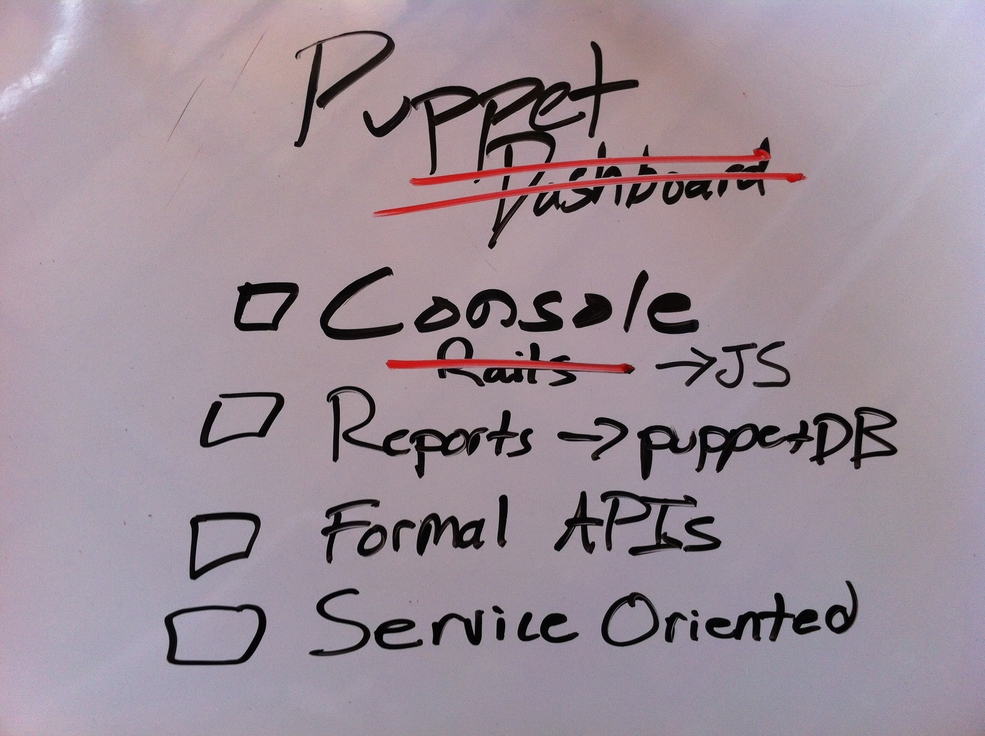 Puppet
Dashboard
Console
Rails → JS
Reports → puppetDB
Formal APIs
Service Oriented